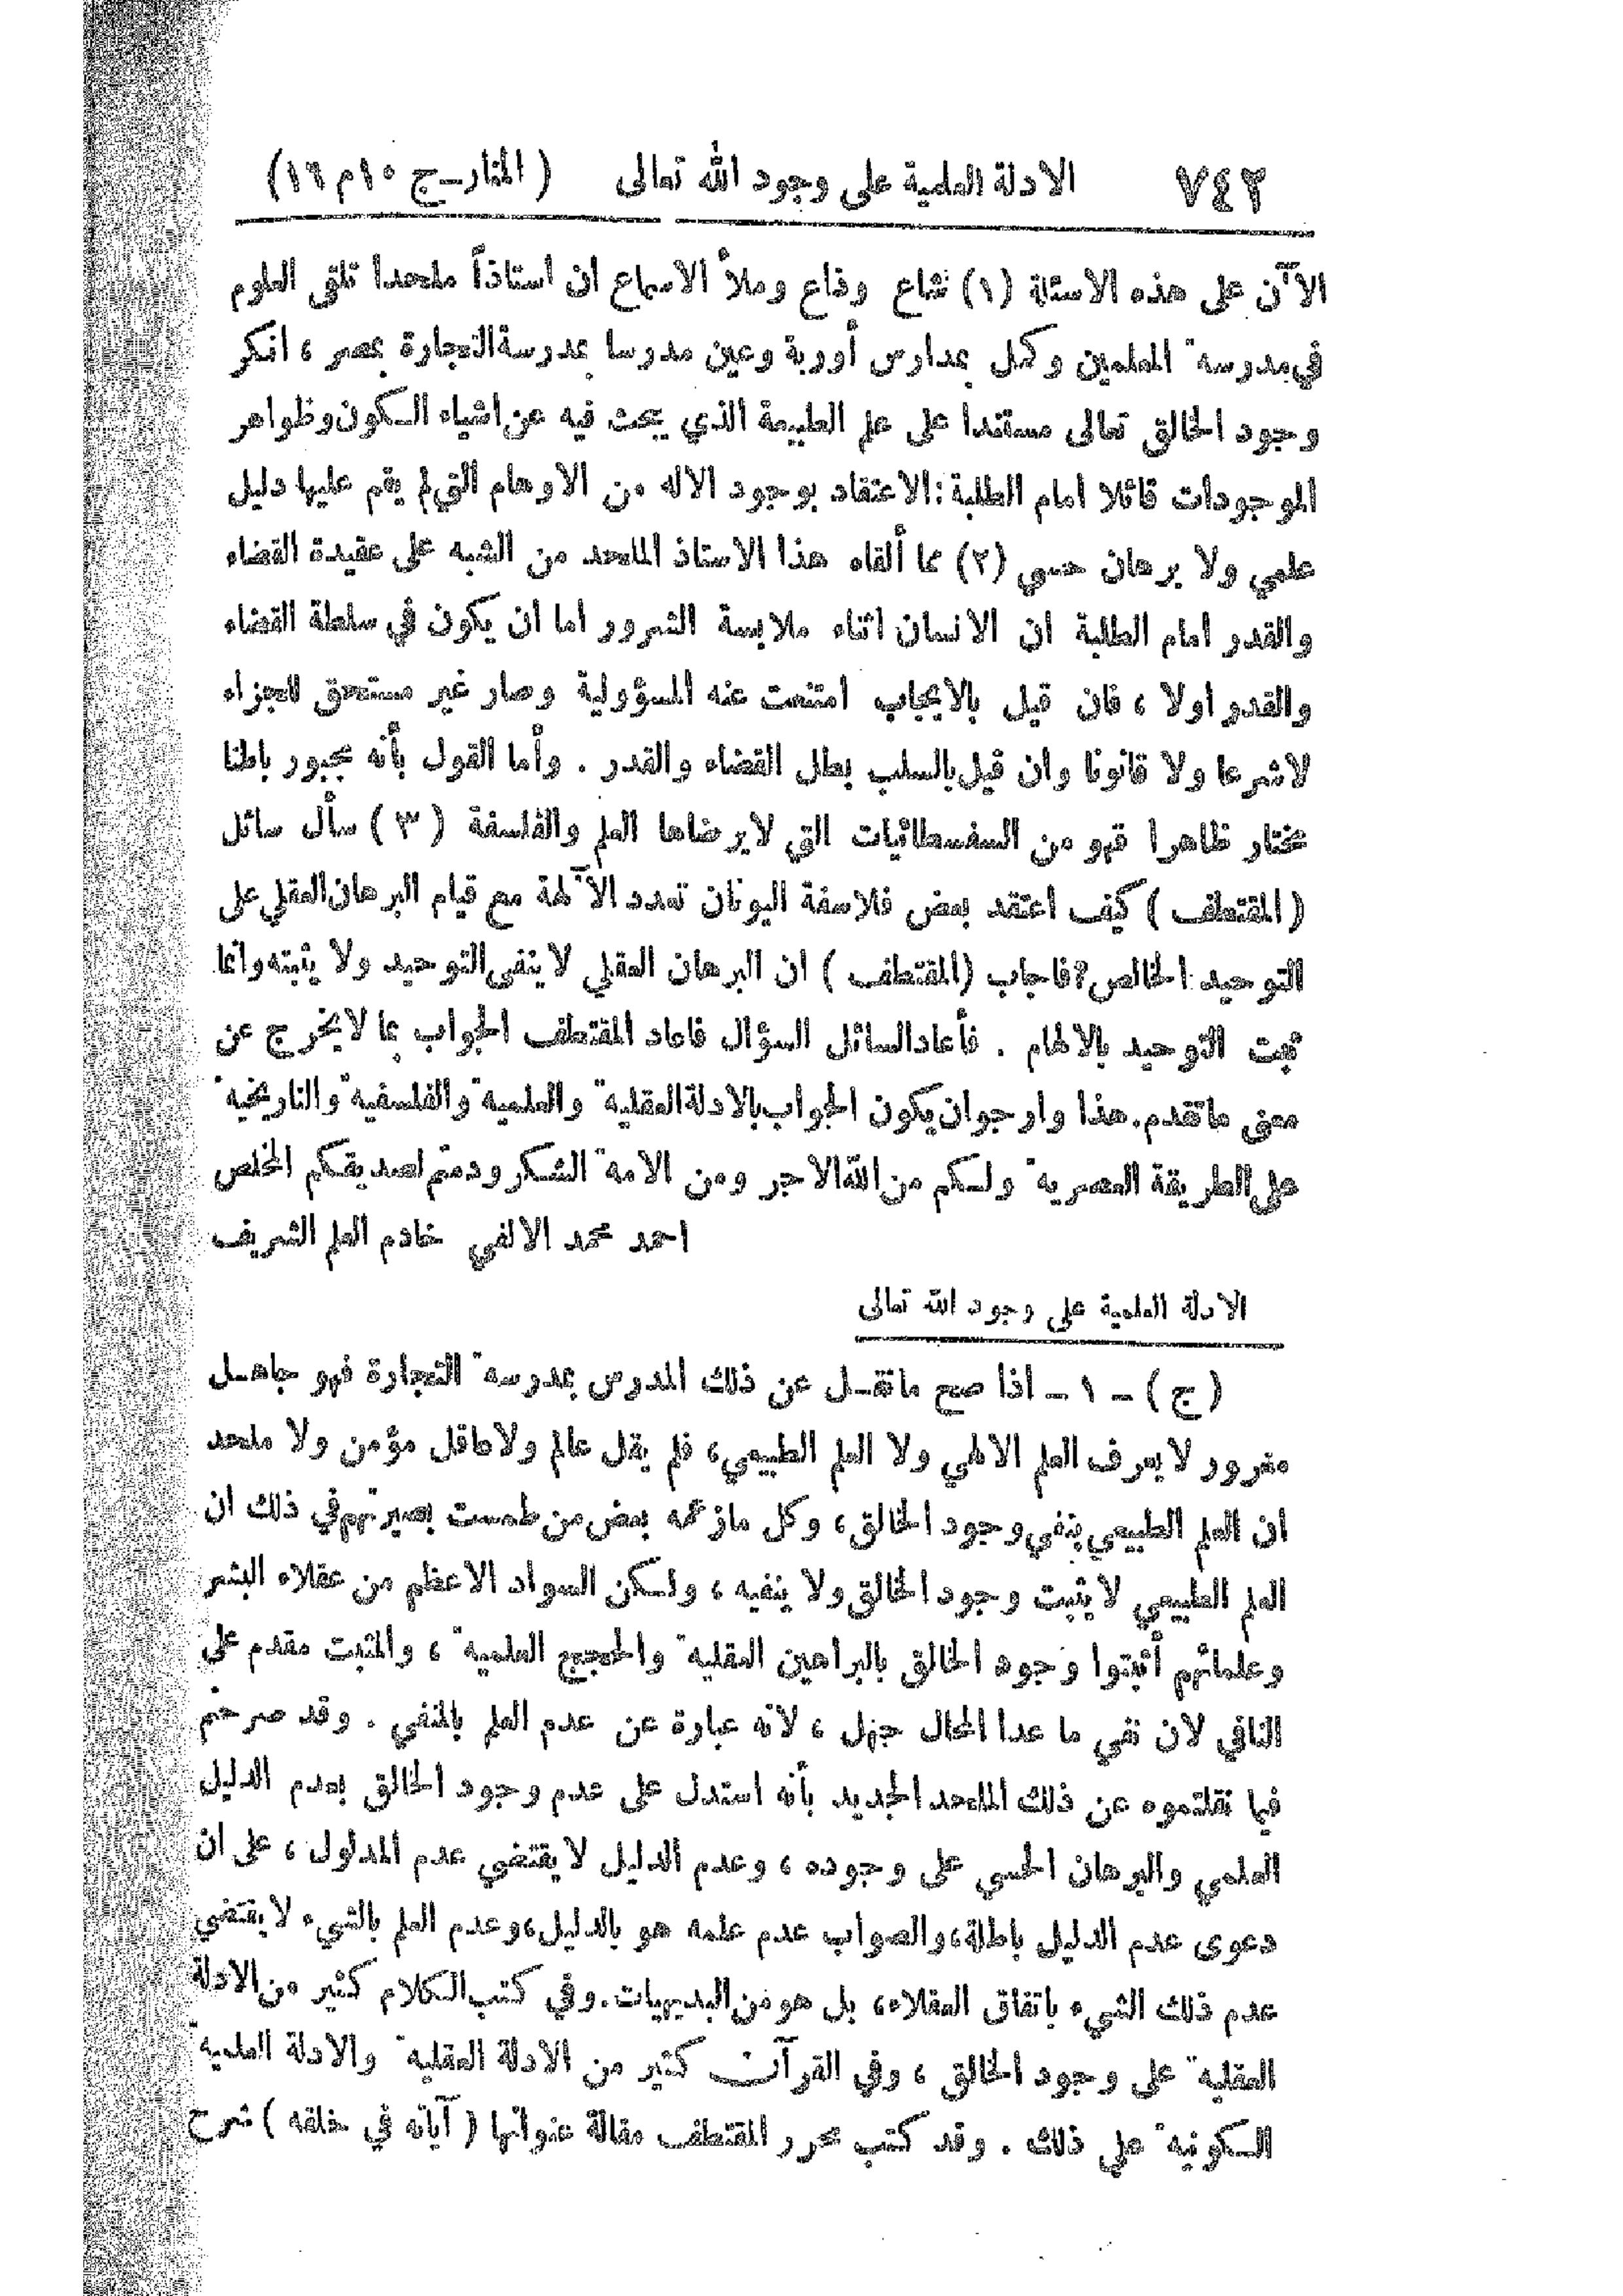 ٧٤٢ الادلة العلمية على وجود الله تعالى ( المنار ـ ج ١٠ م ١٦)
الآن على هذه الاسئلة (١) شاع وذاع وملأ الاسماع ان استاذاً ملحدا تلقى العلوم
في مدرسة المعلمين وكمل بمدارس أوربة وعين مدرسا بمدرسة التجارة بمصر ، انكر
وجود الخالق تعالى مستندا على علم الطبيعة الذي يبحث فيه عن اشياء الكون وظواهر
الموجودات قائلا امام الطلبة : الاعتقاد بوجود الاله من الاوهام التي لم يقم عليها دليل
علمي ولا برهان حسي (٢) مما ألقاه هذا الاستاذ الملحد من الشبه على عقيدة القضاء
والقدر امام الطلبة ان الانسان اثناء ملابسة الشرور اما ان يكون في سلطة القضاء
والقدر اولا ، فان قيل بالايجاب امتنعت عنه المسؤولية وصار غير مستحق للجزاء
لاشرعا ولا قانونا وان قيل بالسلب بطل القضاء والقدر . وأما القول بأنه مجبور باطنا
مختار ظاهرا فهو من السفسطائيات التي لايرضاها العلم والفلسفة ( ٣ ) سأل سائل
( المقتطف ) كيف اعتقد بعض فلاسفة اليونان تعدد الآلهة مع قيام البرهان العقلي على
التوحيد الخالص ؟ فاجاب (المقتطف ) ان البرهان العقلي لا ينفى التوحيد ولا يثبته وانما
ثبت التوحيد بالالهام . فأعاد السائل السؤال فاعاد المقتطف الجواب بما لا يخرج عن
معنى ماتقدم. هذا وارجو ان يكون الجواب بالادلة العقلية والعلمية والفلسفية والتاريخية
على الطريقة العصرية ولكم من الله الاجر ومن الامة الشكر ودمتم لصديقكم المخلص
احمد محمد الالفي خادم العلم الشريف
الادلة العلمية على وجود الله تعالى
( ج ) ـ ١ ـ اذا صح مانقل عن ذلك المدرس بمدرسة التجارة فهو جاهل
مغرور لا يعرف العلم الالهي ولا العلم الطبيعي، فلم يقل عالم ولاعاقل مؤمن ولا ملحد
ان العلم الطبيعي ينفي وجود الخالق ، وكل مازعمه بعض من طمست بصيرتهم في ذلك ان
العلم الطبيعي لا يثبت وجود الخالق ولا ينفيه ، ولكن السواد الاعظم من عقلاء البشر
وعلمائهم أثبتوا وجود الخالق بالبراهين العقلية والحجج العلمية ، والمثبت مقدم على
النافي لان نفي ما عدا المحال جهل ، لانه عبارة عن عدم العلم بالمنفي . وقد صرحتم
فيما نقلتموه عن ذلك الملحد الجديد بأنه استدل على عدم وجود الخالق بعدم الدليل
العلمي والبرهان الحسي على وجوده ، وعدم الدليل لا يقتضي عدم المدلول ، على ان
دعوى عدم الدليل باطلة، والصواب عدم علمه هو بالدليل، وعدم العلم بالشيء لا يقتضي
عدم ذلك الشيء باتفاق العقلاء، بل هو من البديهيات. وفي كتب الكلام كثير من الادلة
العقلية على وجود الخالق ، وفي القرآن كثير من الادلة العقلية والادلة العلمية
الكونية على ذلك . وقد كتب محرر المقتطف مقالة عنوانها ( آياته في خلقه ) شرح